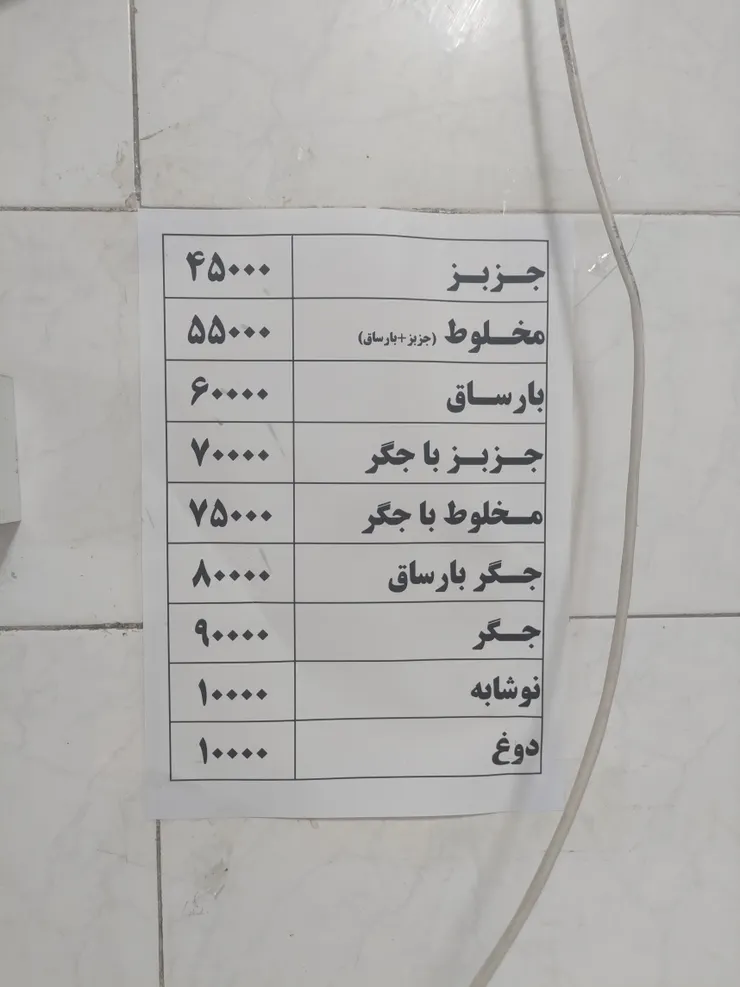 جـزبـز ۴۵۰۰۰
مخـلـوط (جزبز+بارساق) ۵۵۰۰۰
بارسـاق ۶۰۰۰۰
جـزبـز با جگر ۷۰۰۰۰
مـخلوط با جگر ۷۵۰۰۰
جـگر بارساق ۸۰۰۰۰
جـگر ۹۰۰۰۰
نوشابه ۱۰۰۰۰
دوغ ۱۰۰۰۰